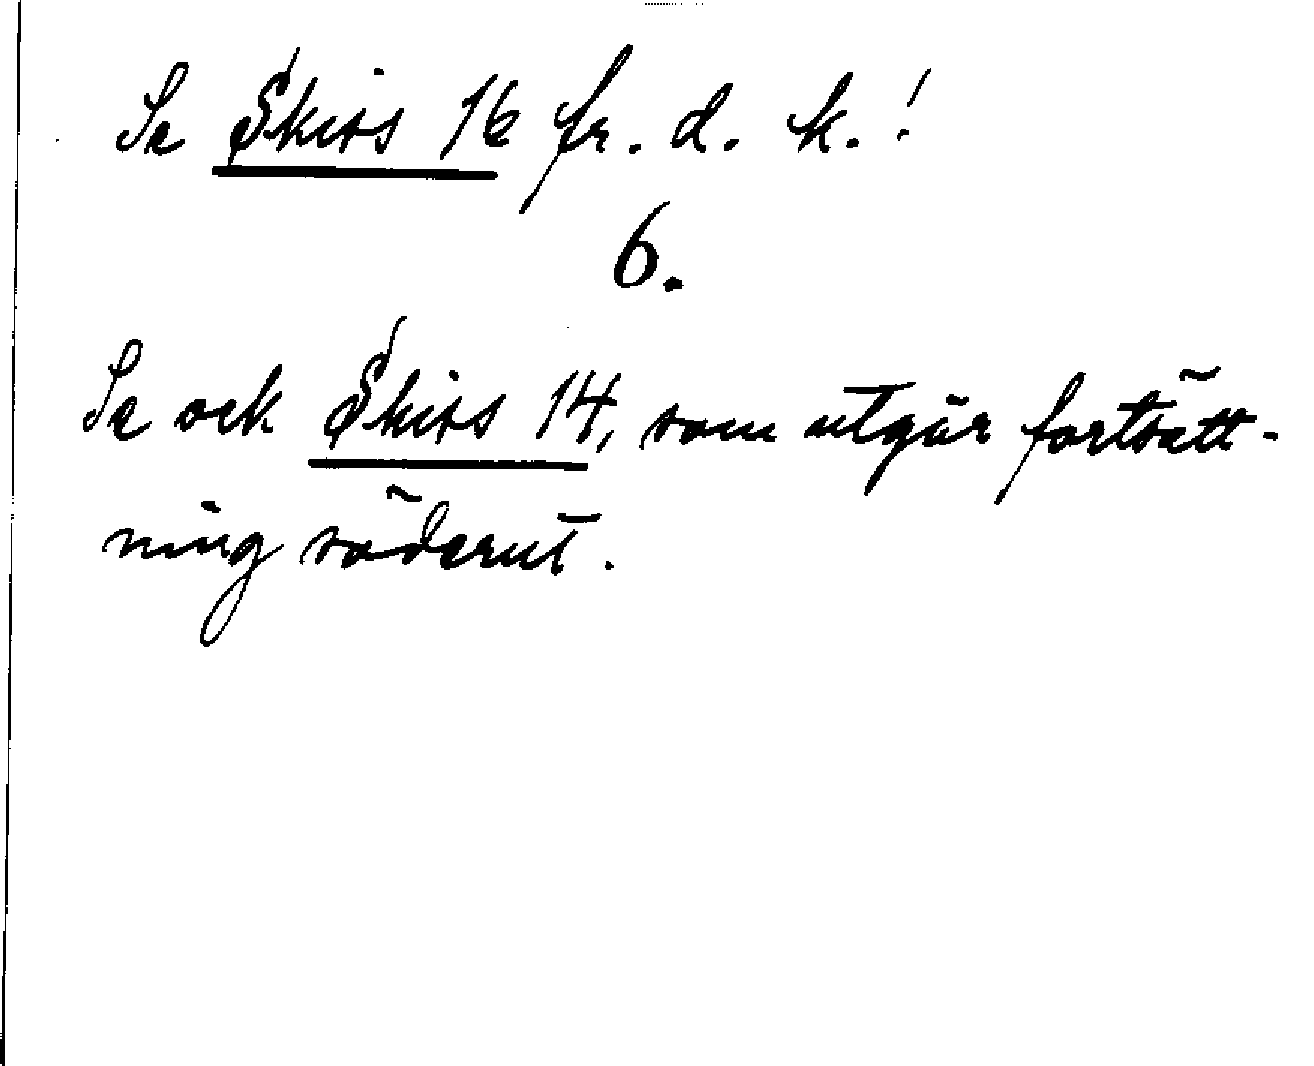 Se Skiss 16 fr. d. k.!
6.
Se ock Skiss 14, som utgör fortsätt-
ning söderut.